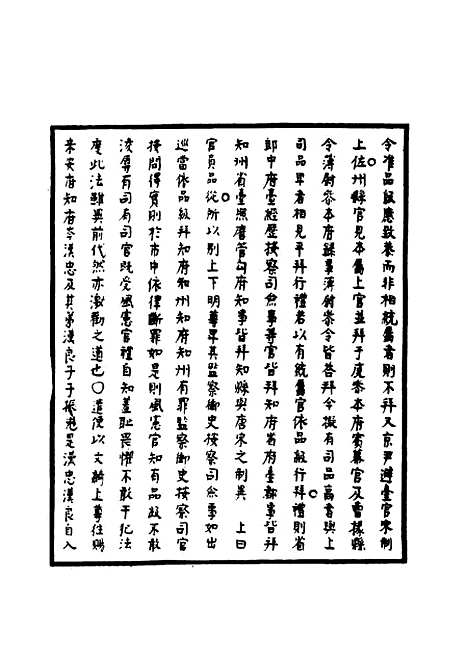 令准品級應致恭而非相統屬者則不拜又京尹避臺官宋制
上佐州縣官見本屬上官並拜于庭參本府賓幕官及曹掾縣
令簿尉參本府錄事簿尉參令皆答拜今擬有司品高者與上
司品卑者相見平拜行禮若以有統屬官依品級行拜禮則省
郎中府臺經歷按察司僉事等官皆拜知府省府臺都事皆拜
知州省臺照磨管勾府知事皆拜知縣與唐宋之制異 上曰
官員品從所以別上下明尊卑其監察御史按察司僉事如出
巡當依品級拜知府知州知府知州有罪監察御史按察司官
按問得實則於市中依律斷罪如是則風憲官知有品級不敢
淩辱有司有司官既受風憲官禮自知羞恥畏懼不敢干犯法
度此法雖異前代然亦激勸之道也〇遣使以文綺上尊往賜
來安府知府岑漢忠及其弟漢良子子振兇是漢忠漢良自入